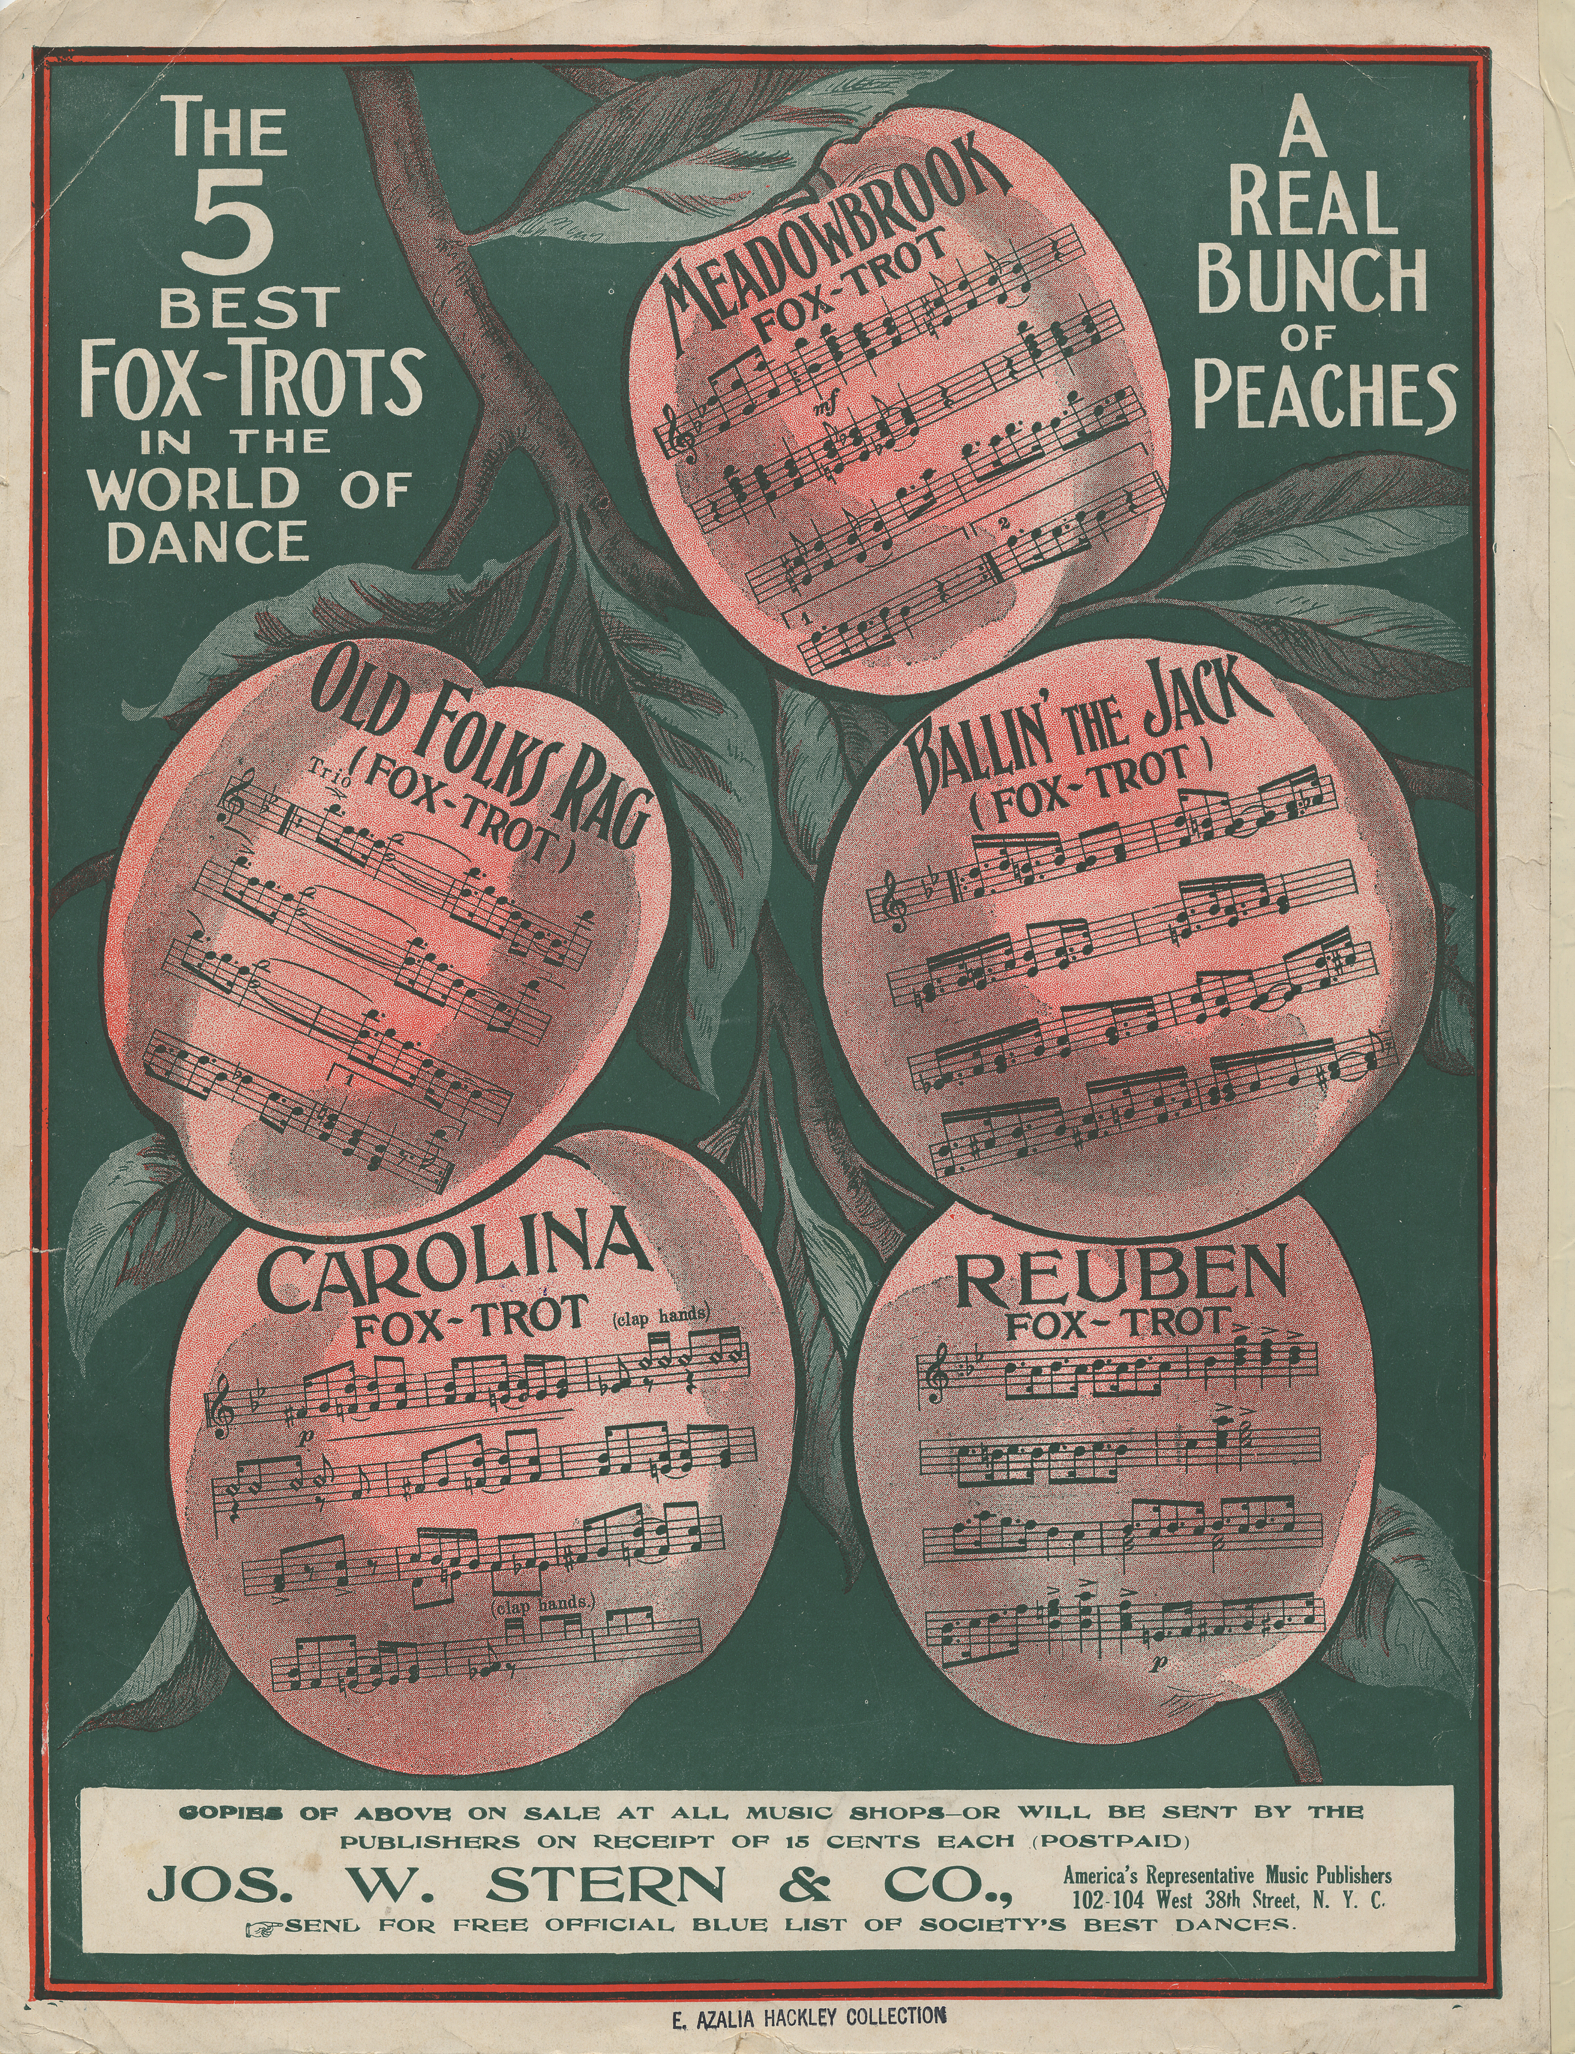 THE
5
BEST
FOX-TROTS
IN THE
WORLD OF
DANCE
A
REAL
BUNCH
OF
PEACHES
MEADOWBROOK
FOX-TROT
mf
1
2
OLD FOLKS RAG
(FOX-TROT)
Trio
1
BALLIN' THE JACK
(FOX-TROT)
CAROLINA
FOX-TROT
(clap hands)
p
(clap hands.)
REUBEN
FOX-TROT
p
COPIES OF ABOVE ON SALE AT ALL MUSIC SHOPS—OR WILL BE SENT BY THE
PUBLISHERS ON RECEIPT OF 15 CENTS EACH (POSTPAID)
JOS. W. STERN & CO.,
America's Representative Music Publishers
102-104 West 38th Street, N. Y. C.
SEND FOR FREE OFFICIAL BLUE LIST OF SOCIETY'S BEST DANCES.
E. AZALIA HACKLEY COLLECTION